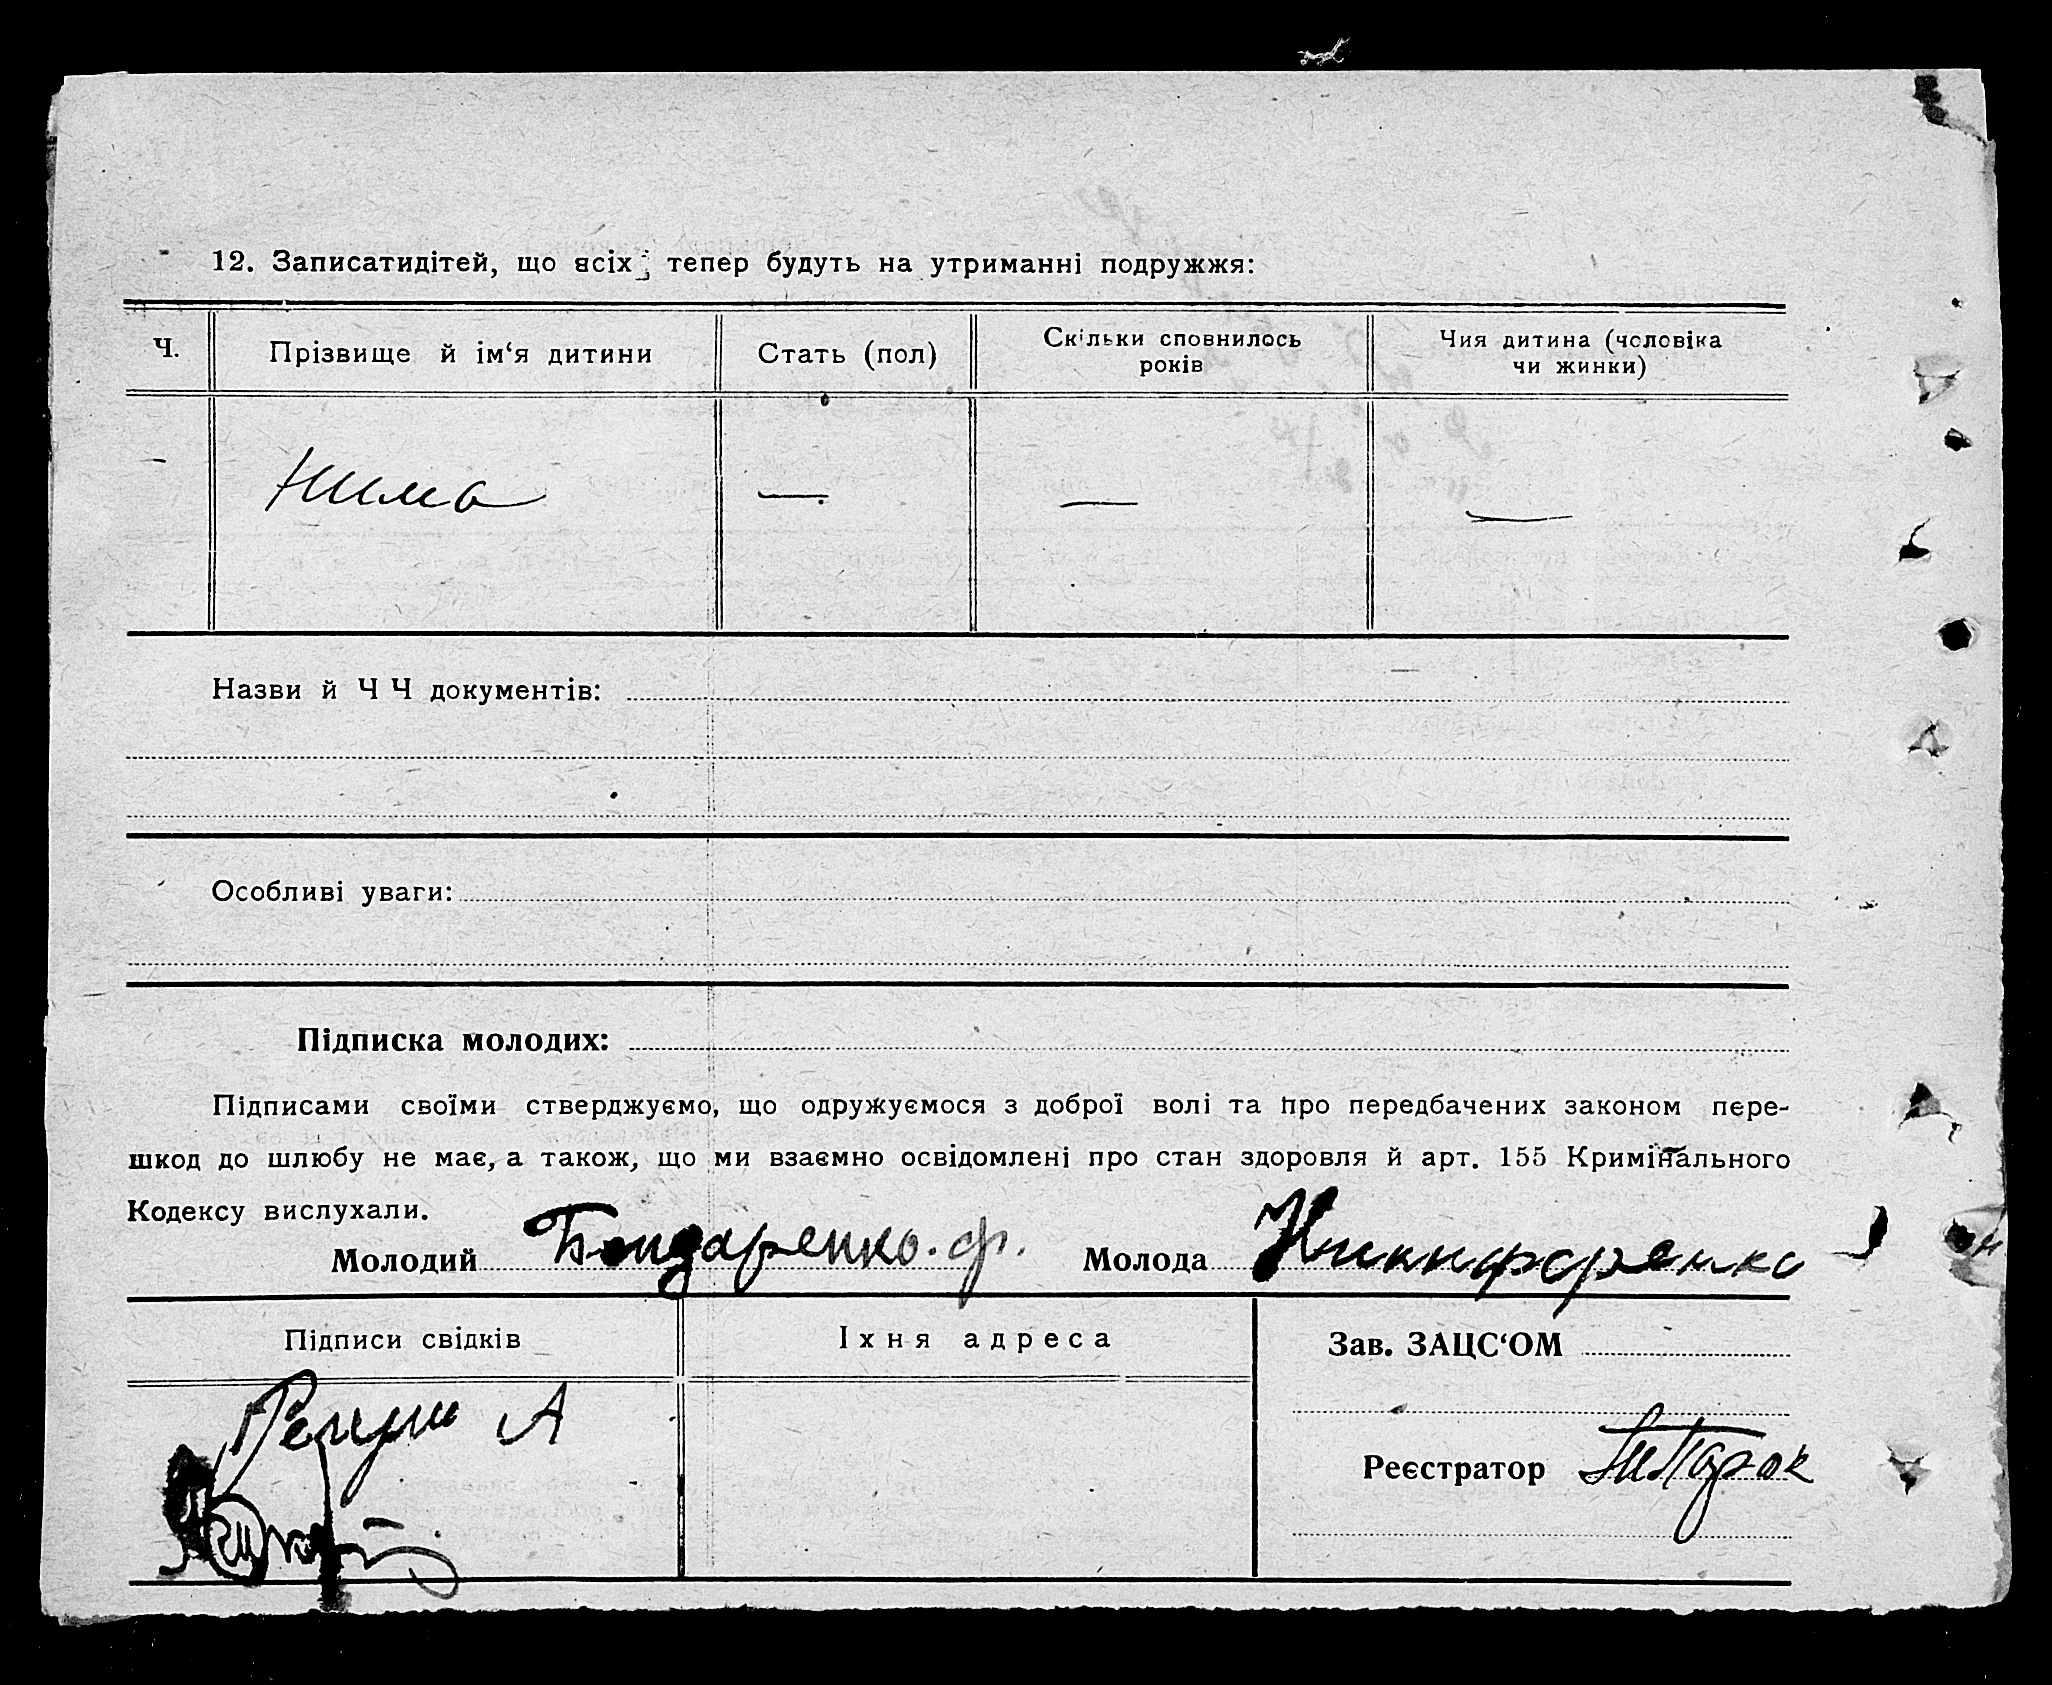 12. Записатидітей, що всіх тепер будуть на утриманні подружжя:
Ч.
Прізвище й ім‘я дитини
Стать (пол)
Скільки сповнилось
років
Чия дитина (чоловіка
чи жинки)
— Нима — — —
Назви й Ч Ч документів:
Особливі уваги:
Підписка молодих:
Підписами своїми стверджуємо, що одружуємося з доброї волі та про передбачених законом пере-
шкод до шлюбу не має, а також, що ми взаємно освідомлені про стан здоровля й арт. 155 Кримінального
Кодексу вислухали.
Молодий Бондаренко. Ф. Молода Никифоренко
Підписи свідків
Їхня адреса
Зав. ЗАЦС‘ОМ
А
Реєстратор